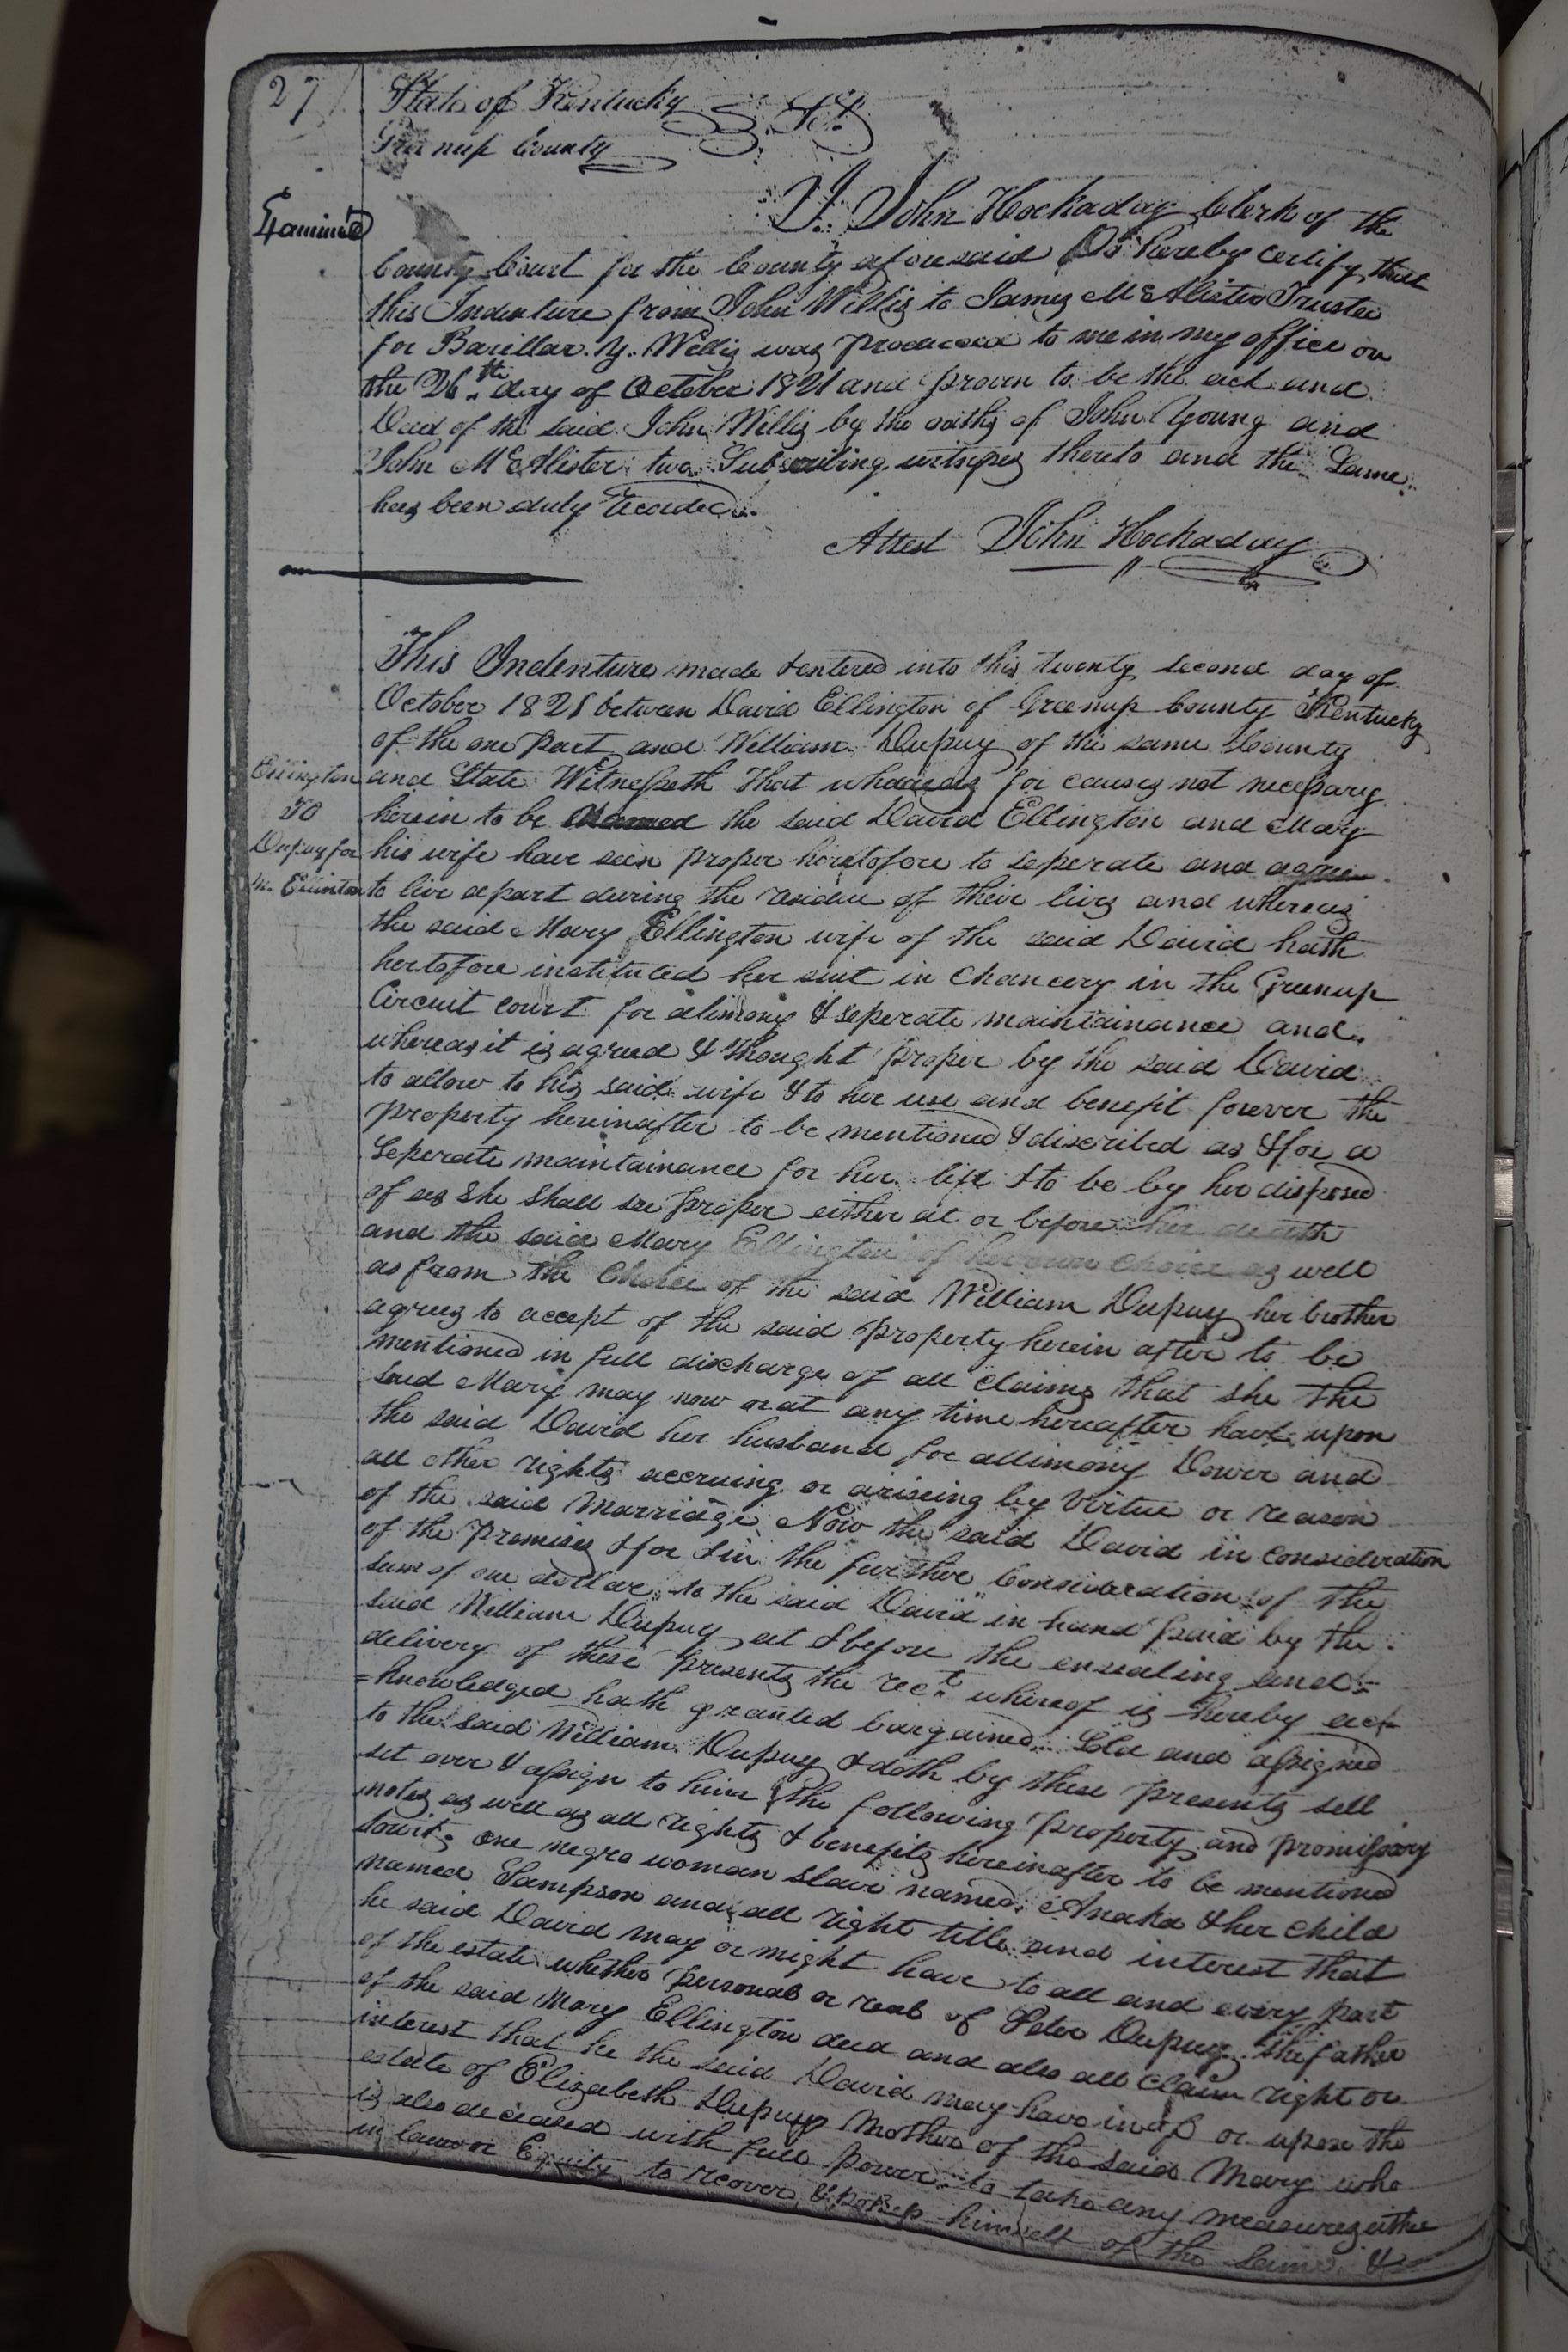 27
State of Kentucky
Greenup County Sct
Examined
I John Hockaday Clerk of the
County Court for the County aforesaid Do hereby certify that
this Indenture from John Willis to James McAlister Trustee
for Barillar. Y. Willis was produced to me in my office on
the 26th day of October 1821 and proven to be the act and
Deed of the said John Willis by the oaths of John Young and
John McAlister two Subscribing witnesses thereto and the Same
has been duly Recorded.
Attest John Hockaday
This Indenture made & entered into this twenty second day of
October 1821 between David Ellington of Greenup County Kentucky
of the one part and William Dupuy of the same County
and State Witnesseth That whereas for causes not necessary
herein to be named the said David Ellington and Mary
his wife have seen proper heretofore to seperate and agree
to live apart during the residue of their lives and whereas
Ellington
To
Dupuy for
M. Ellinton
the said Mary Ellington wife of the said David hath
hertofore instituted her suit in Chancery in the Greenup
Circuit court for alimony & seperate maintainance and
whereas it is agreed & thought proper by the said David
to allow to his said wife & to her use and benefit forever the
property hereinafter to be mentioned & discribed as & for a
Seperate maintainance for her life & to be by her disposed
of as she shall see proper either at or before her death
and the said Mary Ellington of her own choice as well
as from the Choice of the said William Dupuy her brother
agrees to accept of the said property herein after to be
mentioned in full discharge of all claims that she the
said Mary may now or at any time hereafter have upon
the said David her husband for allimony Dower and
all other rights accruing or ariseing by Virtue or reason
of the said Marriage Now the said David in consideration
of the premises & for & in the further Consideration of the
sum of one dollar to the said David in hand paid by the
said William Dupuy at & before the ensealing and
delivery of these presents the rect whereof is hereby ack
=knowledged hath granted bargained Sold and assigned
to the said William Dupuy & doth by these presents sell
set over & assign to him the following property and promissory
notes as well as all rights & benefits hereinafter to be mentioned
towit, one negro woman slave named Anaka & her child
named Sampson and all right title and interest that
he said David may or might have to all and every part
of the estate whether personal or real of Peter Dupuy the father
of the said Mary Ellington decd and also all claim right or
interest that he the said David may have in of or upon the
estate of Elizabeth Dupuy Mother of the said Mary who
is also deceased with full power to take any measures either
in law or Equity to recover & possess himself of the same &